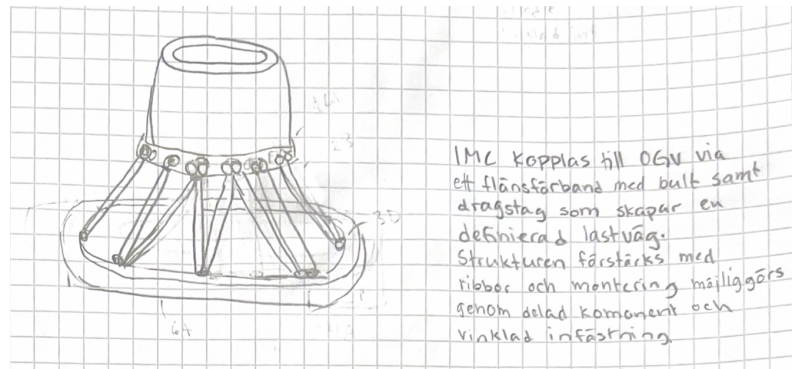 IMC kopplas till OGV via
ett flänsförband med bult samt
dragstag som skapar en
definierad lastväg.
Strukturen förstärks med
ribbor och montering möjliggörs
genom delad komonent och
vinklad infästning
3D
6A